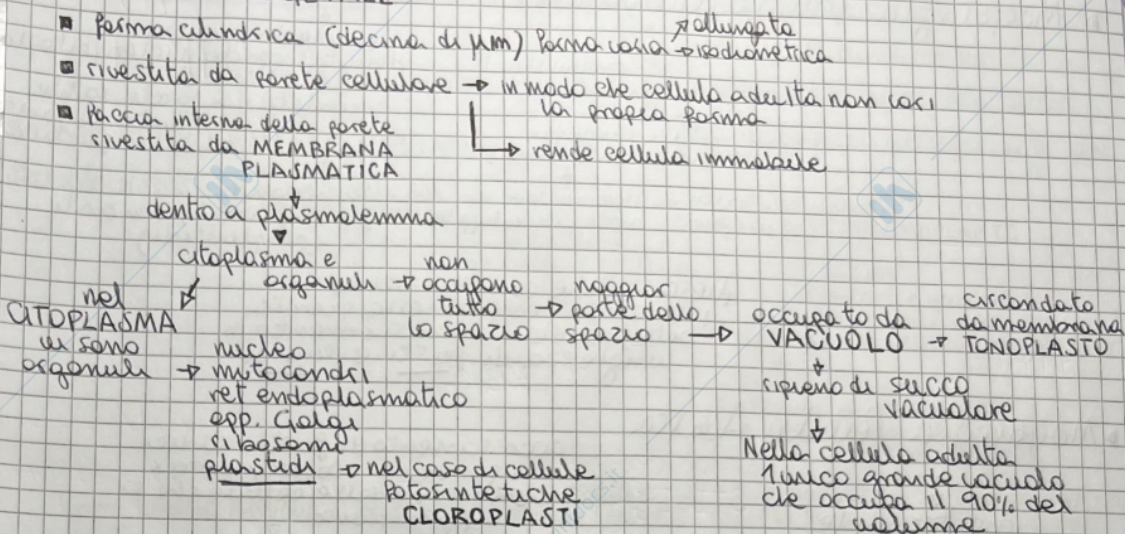 ▪ forma cilindrica (decina di µm) forma varia → allungata
→ isodiametrica
▪ rivestita da parete cellulare → in modo che cellula adulta non vari
la propria forma
→ rende cellula immobile
▪ faccia interna della parete
rivestita da MEMBRANA
PLASMATICA
dentro a plasmalemma
citoplasma e
organuli → non
occupano
tutto
lo spazio → maggior
parte dello
spazio → occupato da
VACUOLO → circondato
da membrana
TONOPLASTO
nel
CITOPLASMA
vi sono
organuli → nucleo
mitocondri
ret endoplasmatico
app. Golgi
ribosomi
plastidi → nel caso di cellule
fotosintetiche
CLOROPLASTI
ripieno di succo
vacuolare
Nella cellula adulta
1 unico grande vacuolo
che occupa il 90% del
volume